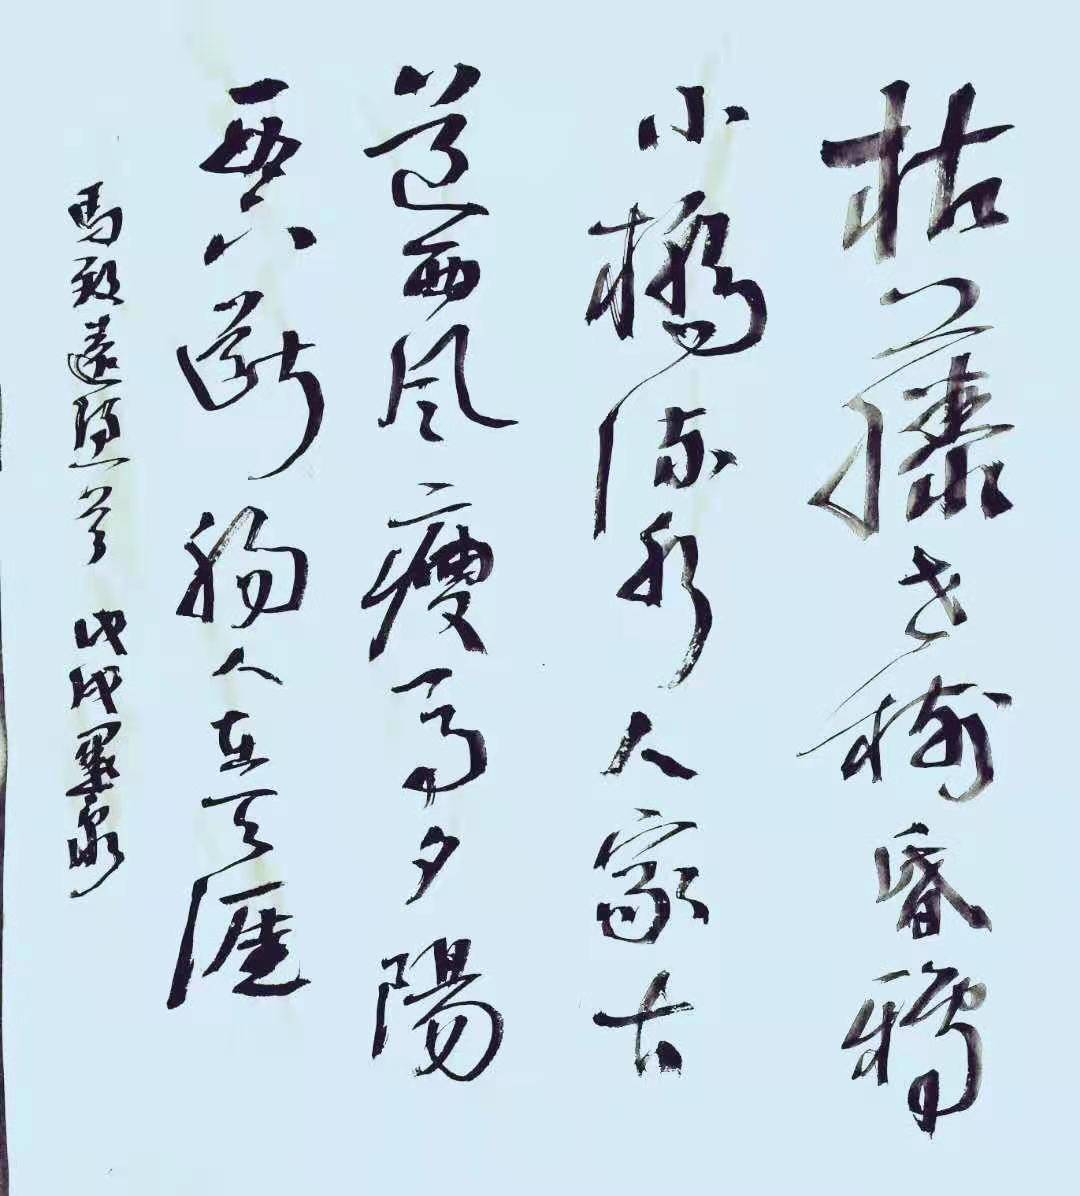 枯藤老樹昏鴉
小橋流水人家古
道西風瘦馬夕陽
西下斷腸人在天涯
馬致遠 戊戌墨泉